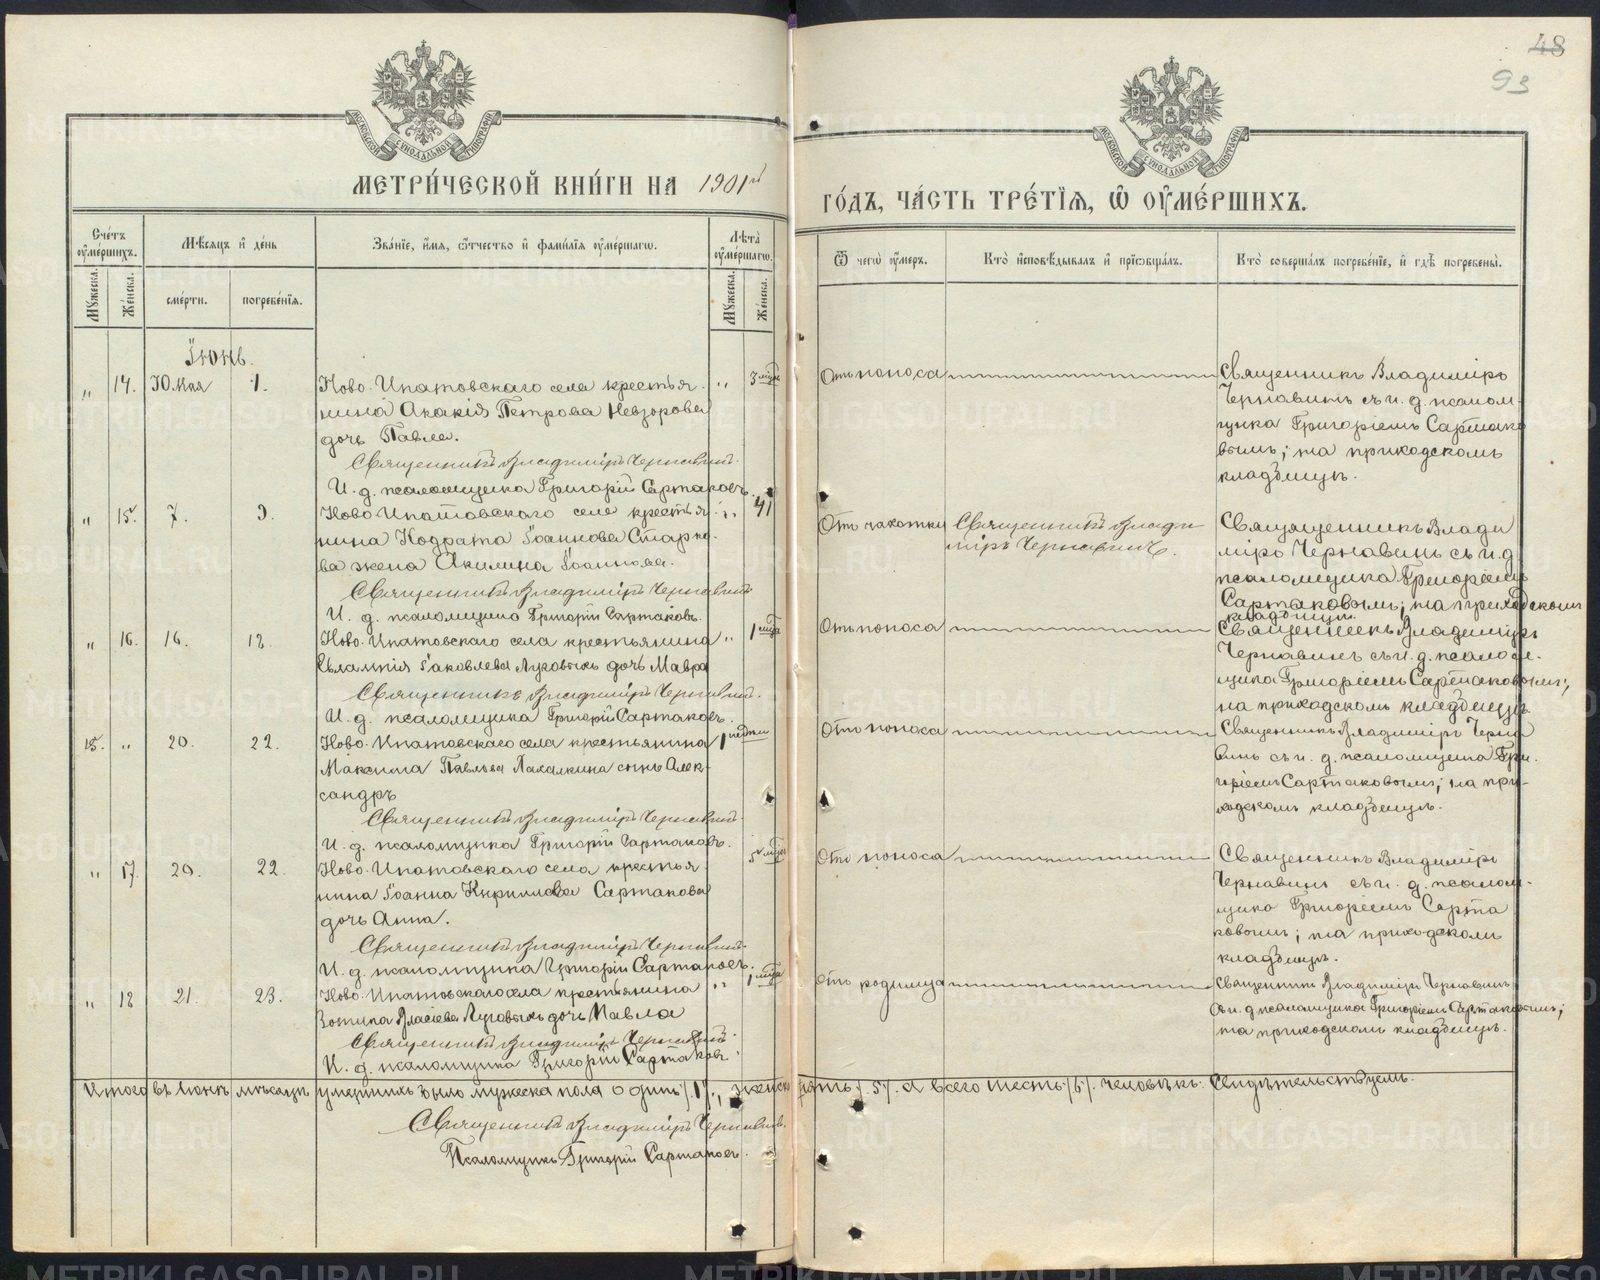 48
93
МОСКОВСКОЙ СѴНОДАЛЬНОЙ ТИПОГРАФІИ
МОСКОВСКОЙ СѴНОДАЛЬНОЙ ТИПОГРАФІИ
МЕТРИ́ЧЕСКОЙ КНИ́ГИ НА 1901й
ГО́ДЪ, ЧА́СТЬ ТРЕ́ТІѦ, Ѽ ОУ҆МЕ́РШИХЪ.
Сче́тъ оу҆ме́ршихъ.
Мꙋ́жеска.
Же́нска.
Мѣ́сѧцъ и҆ де́нь
сме́рти.
погребе́нїѧ.
Зва́нїе, и҆́мѧ, ѻ҆́тчество и҆ фами́лїѧ оу҆ме́ршагѡ.
Лѣ́та оу҆ме́ршагѡ.
Мꙋ́жеска.
Же́нска.
Ѿ чегѡ̀ оу҆́меръ.
Кто̀ и҆сповѣ́дывалъ и҆ прїѻбща́лъ.
Кто̀ соверша́лъ погребе́нїе, и҆ гдѣ̀ погребены̀.
Іюнь.
„ 14. 30. мая 1. Ново-Ипатовскаго села крестья- „ 3 мца
нина Акакія Петрова Невзорова
дочь Павла.
Священникъ Владиміръ Чернавинъ.
И. д. псаломщика Григорій Сартаковъ.
Отъ поноса
Священникъ Владиміръ
Чернавинъ съ и. д. псалом-
щика Григоріемъ Сартако
вымъ; на приходскомъ
кладбищѣ.
„ 15. 7. 9. Ново-Ипатовскаго села крестья- „ 41
нина Кодрата Іоаннова Старко-
ва жена Акилина Іоаннова.
Священникъ Владиміръ Чернавинъ
И. д. псаломщика Григорій Сартаковъ.
Отъ чахотки
Священникъ Влади
міръ Чернавинъ.
Свящященникъ Влади
міръ Чернавинъ съ и. д.
псаломщика Григоріемъ
Сартаковымъ; на приходскомъ
кладбищѣ.
„ 16. 16. 18. Ново-Ипатовскаго села крестьянина „ 1 мца
Евлампія Іаковлева Луговыхъ дочь Мавра
Священникъ Владиміръ Чернавинъ.
И. д. псаломщика Григорій Сартаковъ.
Отъ поноса
Священникъ Владиміръ
Чернавинъ съ и. д. псалом-
щика Григоріемъ Сартаковымъ;
на приходскомъ кладбищѣ.
15. „ 20. 22. Ново-Ипатовскаго села крестьянина 1 недѣли
Максима Павлова Лахалкина сынъ Алек-
сандръ
Священникъ Владиміръ Чернавинъ.
И. д. псаломщика Григорій Сартаковъ.
Отъ поноса
Священникъ Владиміръ Черна
винъ съ и. д. псаломщика Гри-
горіемъ Сартаковымъ; на при-
ходскомъ кладбищѣ.
„ 17. 20. 22. Ново-Ипатовскаго села крестья- 5 мцѣв
нина Іоанна Кириллова Сартакова
дочь Анна.
Священникъ Владиміръ Чернавинъ.
И. д. псаломщика Григорій Сартаковъ.
Отъ поноса
Священникъ Владиміръ
Чернавинъ съ и. д. псалом-
щика Григоріемъ Сарта
ковымъ; на приходскомъ
кладбищѣ.
„ 18 21. 23. Ново-Ипатовскаго села крестьянина „ 1 мца
Зотика Власіева Луговыхъ дочь Павла
Священникъ Владиміръ Чернавинъ.
И. д. псаломщика Григорій Сартаковъ.
Отъ родимца
Священникъ Владиміръ Чернавинъ
съ и. д. псаломщика Григоріемъ Сартаковымъ;
на приходскомъ кладбищѣ.
Итого въ Іюнѣ мѣсяцѣ умершихъ было мужеска пола одинъ /1/, женска пять /5/. а всего шесть /6/. человѣкъ. Свидѣтельствуемъ.
Священникъ Владиміръ Чернавинъ.
Псаломщикъ Григорій Сартаковъ.
METRIKI.GASO-URAL.RU